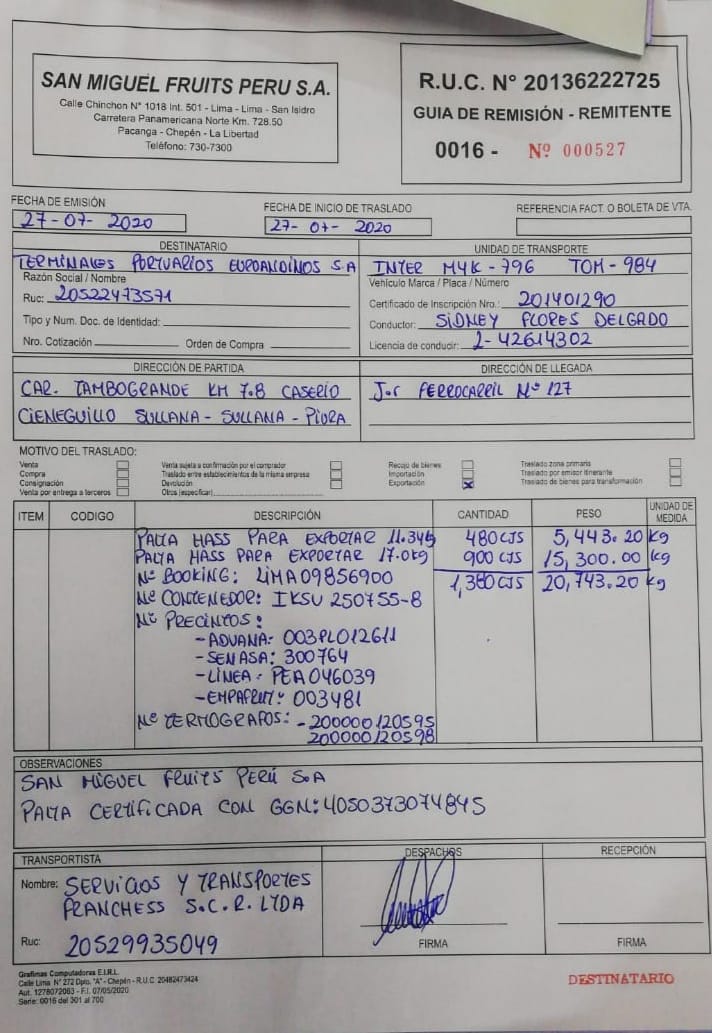 SAN MIGUEL FRUITS PERU S.A.
Calle Chinchon N° 1018 Int. 501 - Lima - Lima - San Isidro
Carretera Panamericana Norte Km. 728.50
Pacanga - Chepén - La Libertad
Teléfono: 730-7300
R.U.C. N° 20136222725
GUIA DE REMISIÓN - REMITENTE
0016 - Nº 000527
FECHA DE EMISIÓN
27-07-2020
FECHA DE INICIO DE TRASLADO
27-07-2020
REFERENCIA FACT. O BOLETA DE VTA.
DESTINATARIO
TERMINALES PORTUARIOS EUROANDINOS S A
Razón Social / Nombre
Ruc: 20522473571
Tipo y Num. Doc. de Identidad:
Nro. Cotización Orden de Compra
UNIDAD DE TRANSPORTE
INTER M4K-796 TOM-984
Vehículo Marca / Placa / Número
Certificado de Inscripción Nro.: 201401290
Conductor: SIDNEY FLORES DELGADO
Licencia de conducir: 2-42614302
DIRECCIÓN DE PARTIDA
CAR. TAMBOGRANDE KM 7.8 CASERIO
CIENEGUILLO SULLANA - SULLANA - PIURA
DIRECCIÓN DE LLEGADA
Jr FERROCARRIL Nº 127
MOTIVO DEL TRASLADO:
Venta
Compra
Consignación
Venta por entrega a terceros
Venta sujeta a confirmación por el comprador
Traslado entre establecimientos de la misma empresa
Devolución
Otros (especificar)
Recojo de bienes
Importación
Exportación X
Traslado zona primaria
Traslado por emisor itinerante
Traslado de bienes para transformación
ITEM CODIGO DESCRIPCIÓN CANTIDAD PESO UNIDAD DE MEDIDA
PALTA HASS PARA EXPORTAR 11.34kg 480 CJS 5,443.20 kg
PALTA HASS PARA EXPORTAR 17.0kg 900 CJS 15,300.00 kg
Nº BOOKING: LIMA09856900 1,380 CJS 20,743.20 kg
Nº CONTENEDOR: IKSU 250755-8
Nº PRECINTOS:
- ADUANA: 003PL012611
- SENASA: 300764
- LÍNEA: PEA046039
- EMPAFRUT: 003481
Nº TERMOGRAFOS: - 200000120595
200000120598
OBSERVACIONES
SAN MIGUEL FRUITS PERÚ S.A
PALTA CERTIFICADA CON GGN: 4050373074845
TRANSPORTISTA
Nombre: SERVICIOS Y TRANSPORTES
FRANCHESS S.C.R. LTDA
Ruc: 20529935049
DESPACHOS
FIRMA
RECEPCIÓN
FIRMA
Grafimas Computadoras E.I.R.L.
Calle Lima N° 272 Dpto. "A" - Chepén - R.U.C. 20482473424
Aut. 1278072063 - F.I. 07/05/2020
Serie: 0016 del 301 al 700
DESTINATARIO